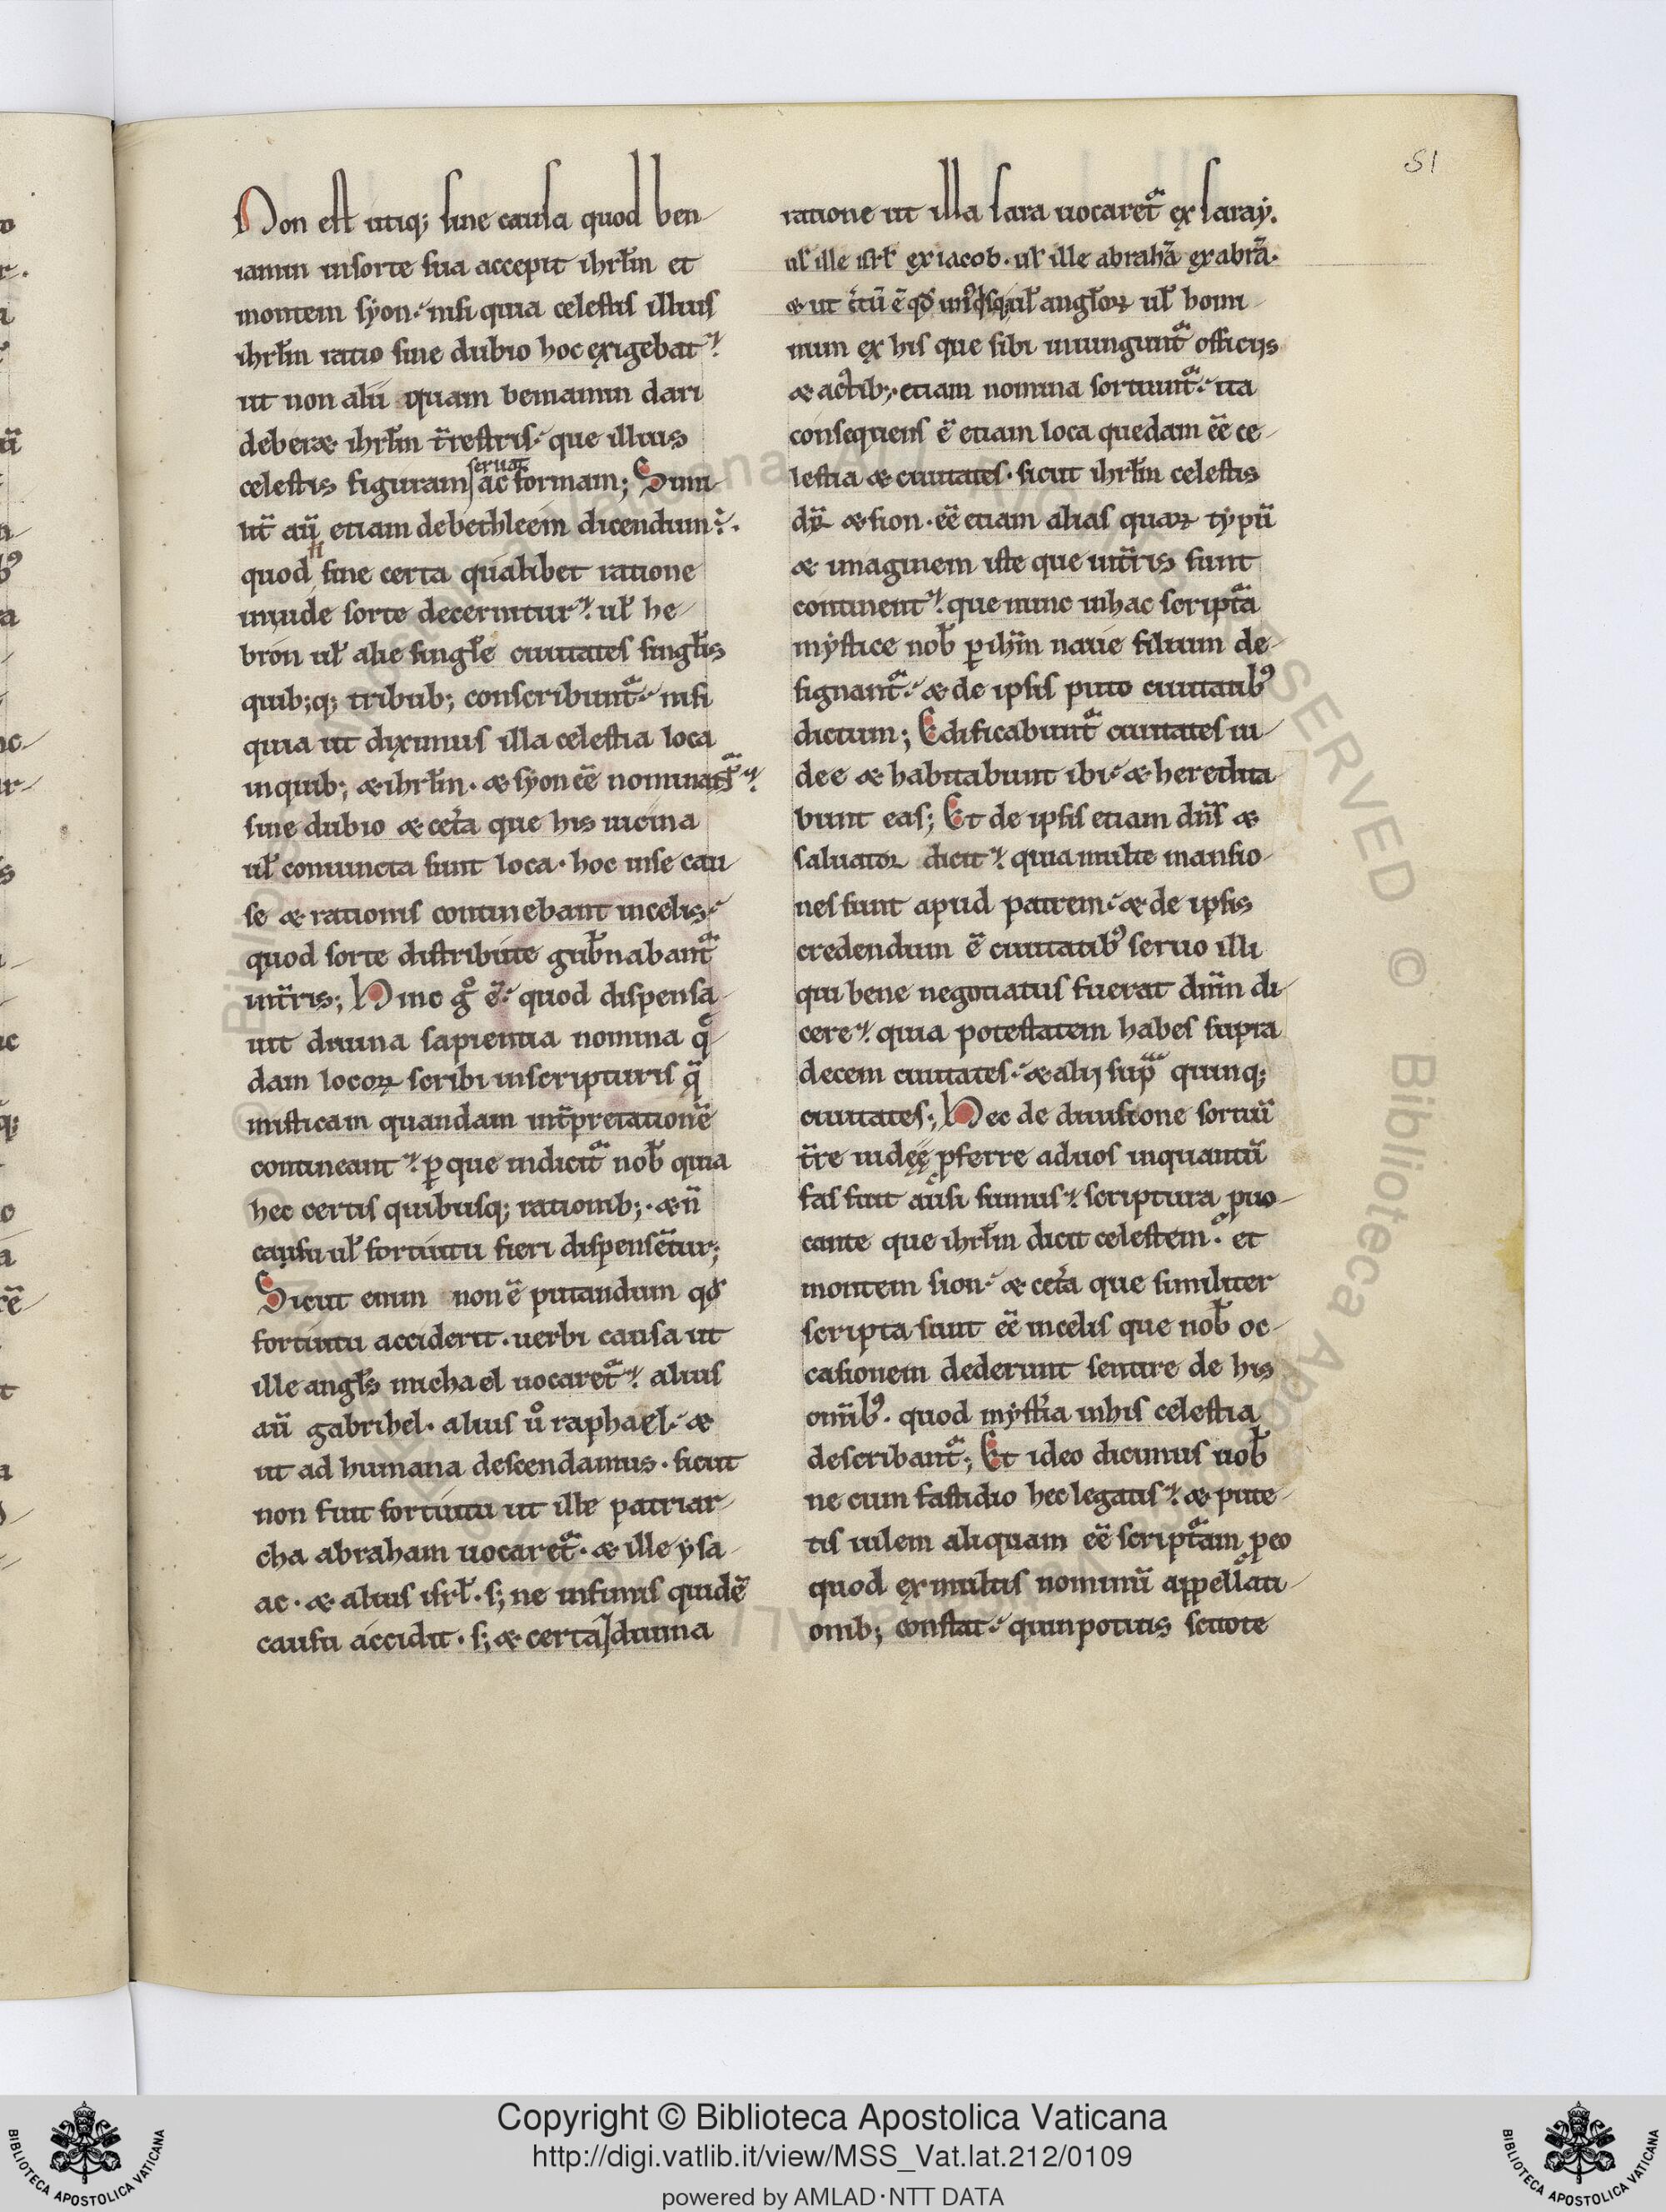 51
Non est utiq; sine causa quod ben-
iamin insorte sua accepit ihrl̄m et
montem syon. nisi quia celestis illius
ihrl̄m ratio sine dubio hoc exigebat.
ut non alii quam beniamin dari
deberæ ihrl̄m t̄restris. que illius
celestis figuram seruat ac formam; Simi-
lit̄ aū etiam debethleem dicendum.
quod n̄ sine certa qualibet ratione
iniude sorte decernitur. ul̄ he-
bron ul̄ alie singl̄e ciuitates singl̄is
quib;q; tribub; conscribunt̄. nisi
quia ut diximus illa celestia loca
inquib; æ ihrl̄m. æ syon eē nominant̄.
sine dubio æ cet̄a que his uicina
ul̄ coniuncta sunt loca. hoc inse cau-
se æ rationis continebant incelis.
quod sorte distribute gub̄nabant̄
int̄ris; Hinc gͦ ē. quod dispensa-
uit diuina sapientia nomina q̄-
dam locoꝝ scribi inscripturis q̄
misticam quandam int̄pretationē
contineant. ꝑ que indicit̄ nob̄ quia
hec certis quibusq; rationib;. æ n̄
causu ul̄ fortuitu fieri dispensētur;
Sicut enim non ē putandum qđ
fortuitu acciderit. uerbi causa ut
ille angl̄s michael uocaret̄. alius
aū gabrihel. alius uͦ raphael. æ
ut ad humana descendamus. sicut
non fuit fortuitu ut ille patriar-
cha abraham uocaret̄. æ ille ysa-
ac. æ alius isrl̄. s; ne infimis quidē
causu accidit. s; æ certa diuina
ratione ut illa sara uocaret̄ ex saray.
ul̄ ille isrl̄ ex iacob. ul̄ ille abrahā ex abrā.
æ ut c̄tū ē qđ angl̄oꝝ ul̄ homi-
num ex his que sibi iniungunt̄ officiis
æ actib;. etiam nomina sortiunt̄. ita
consequens ē etiam loca quedam eē ce-
lestia æ ciuitates. sicut ihrl̄m celestis
æ sion. eē etiam alias quaꝝ typū
æ imaginem iste que int̄ris sunt
continent. que nunc inhac script̄a
mystice nob̄ ꝑ ihm̄ naue filium de-
signant̄. æ de ipsis puto ciuitatibꝰ
dictum; Edificabunt̄ ciuitates iu-
dee æ habitabunt ibi. æ heredita-
bunt eas; Et de ipsis etiam dn̄s æ
saluator dicit. quia multe mansio-
nes sunt apud patrem. æ de ipsis
credendum ē ciuitatibꝰ seruo illi
qui bene negotiatus fuerat dn̄m di-
cere. quia potestatem habes supra
decem ciuitates. æ alii sup̄ quinq;
ciuitates; Hec de diuisione sortiū
t̄re iudeę ꝓferre aduos inquantū
fas fuit ausi sumus. scriptura puo-
cante que ihrl̄m dicit celestem. et
montem sion. æ cet̄a que similiter
scripta sunt eē incelis que nob̄ oc-
casionem dederunt sentire de his
omībꝰ. quod myst̄ia inhis celestia
describant̄; Et ideo dicimus uob̄
ne cum fastidio hec legatis. æ pute-
tis uilem aliquam eē script̄am ꝑeo
quod ex multis nominū appellati-
onib; constat. quin potius scitote
Copyright © Biblioteca Apostolica Vaticana
http://digi.vatlib.it/view/MSS_Vat.lat.212/0109
powered by AMLAD·NTT DATA
BIBLIOTECA APOSTOLICA VATICANA
BIBLIOTECA APOSTOLICA VATICANA